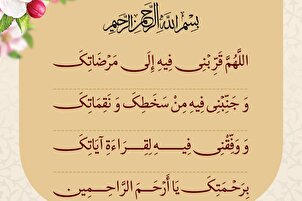 بِسْمِ اللَّهِ الرَّحْمَنِ الرَّحِيمِ
اللَّهُمَّ قَرِّبْنِی فِیهِ إِلَی مَرْضَاتِکَ
وَ جَنِّبْنِی فِیهِ مِنْ سَخَطِکَ وَ نَقِمَاتِکَ
وَ وَفِّقْنِی فِیهِ لِقِرَاءَةِ آیَاتِکَ
بِرَحْمَتِکَ یَا أَرْحَمَ الرَّاحِمِینَ